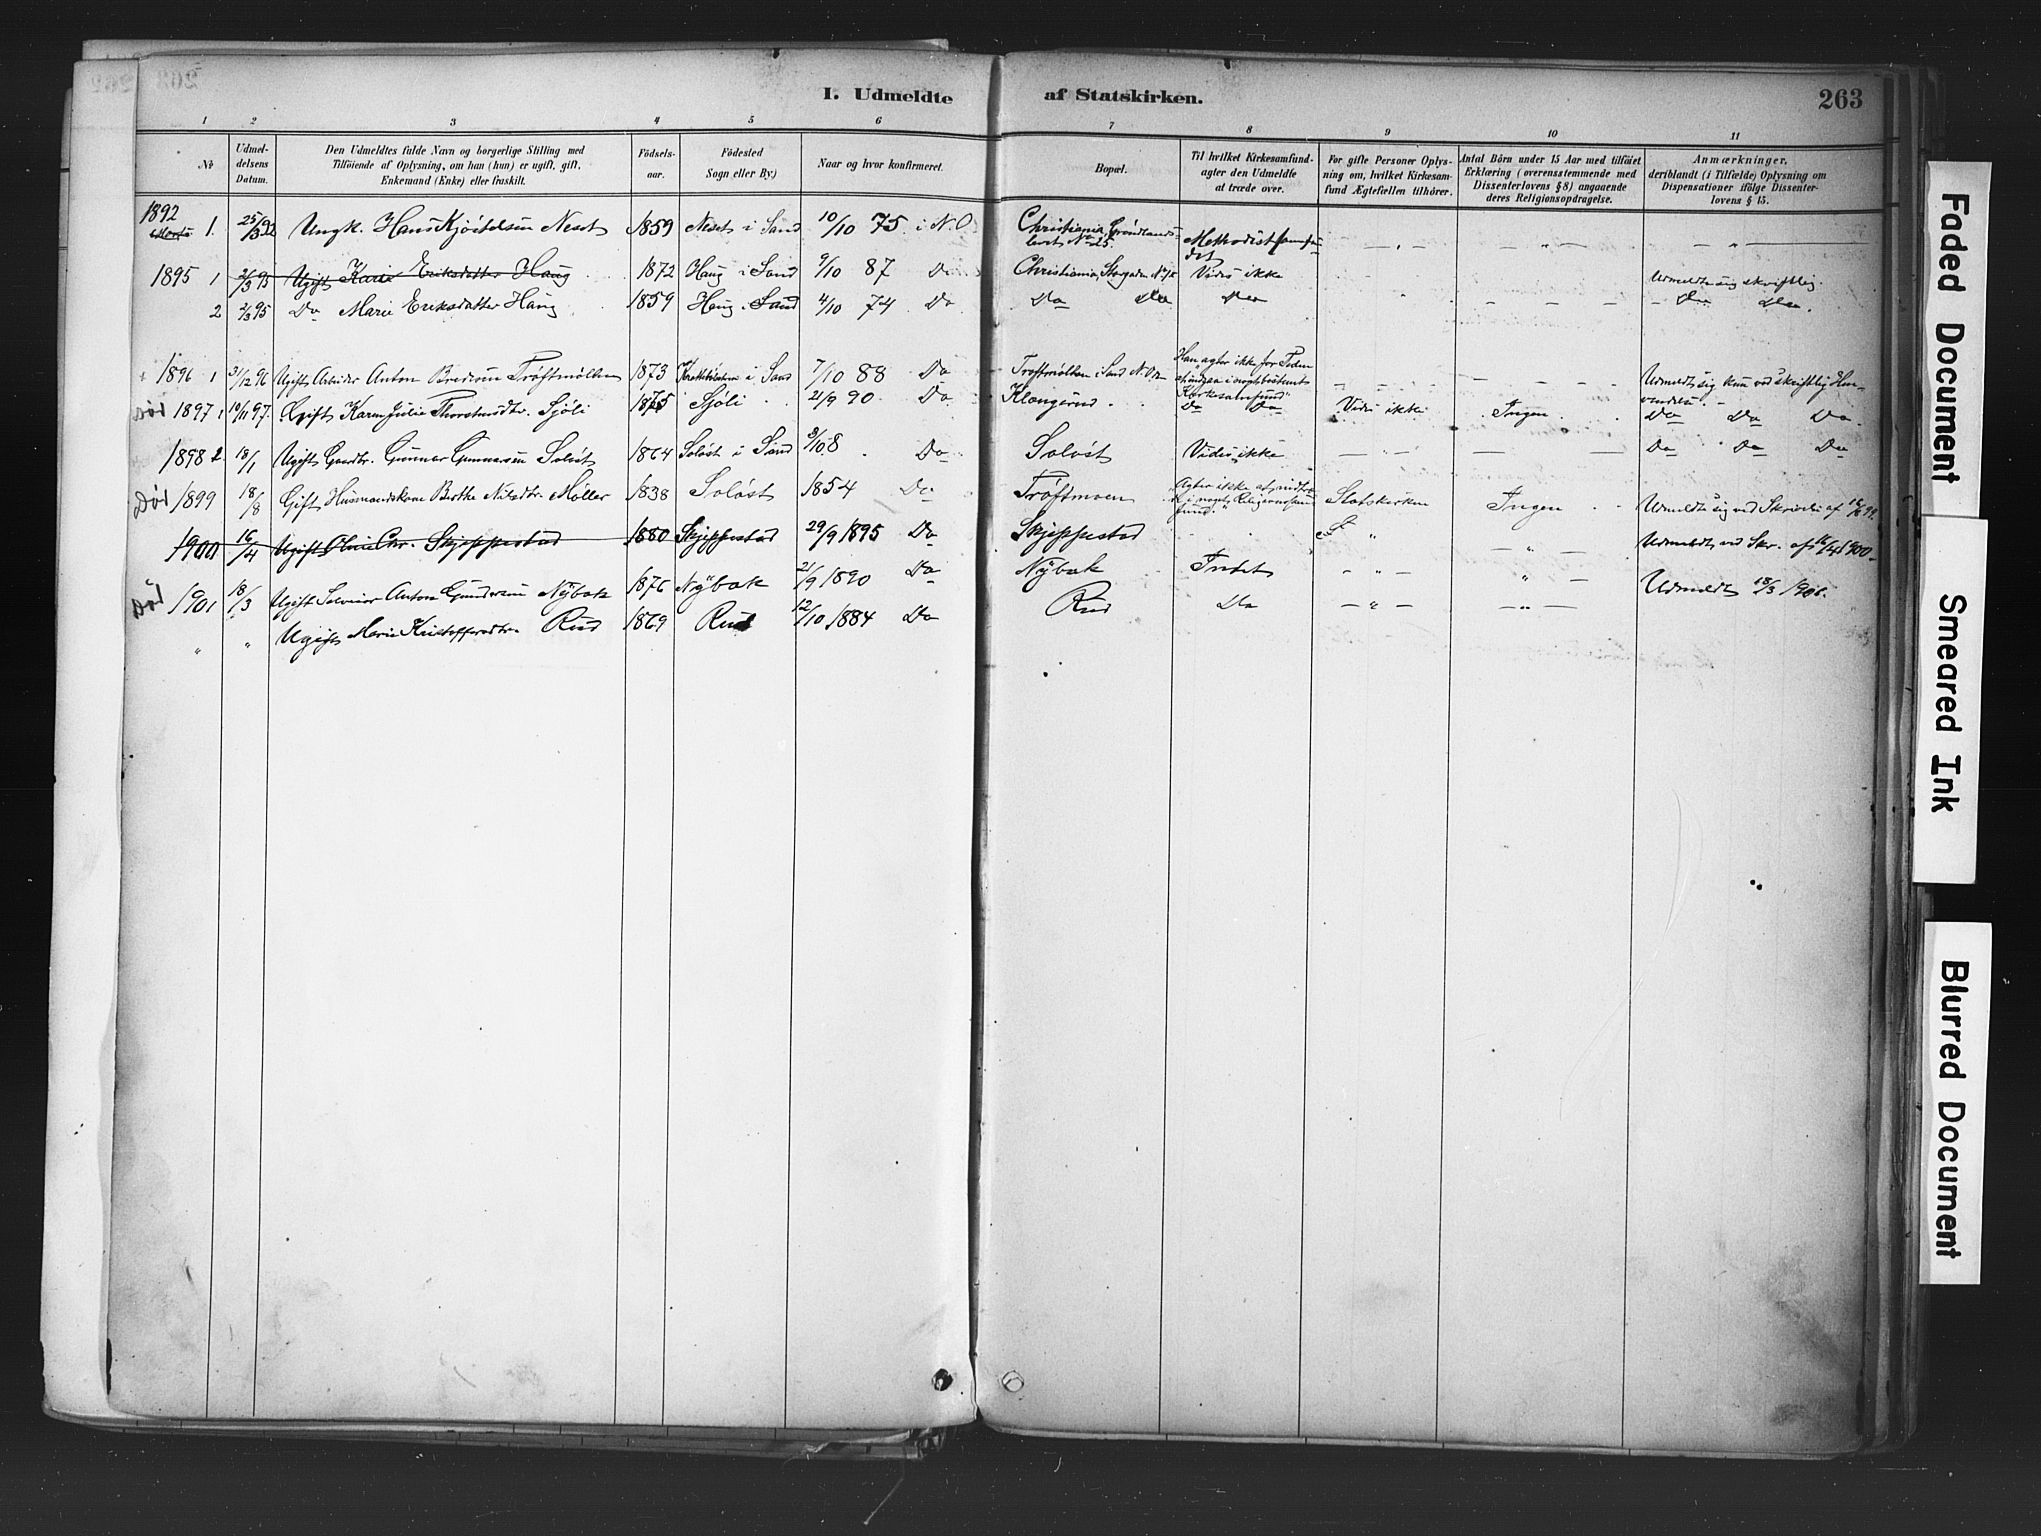 I. Udmeldte af Statskirken. 263
1 2 3 4 5 6 7 8 9 10 11
No
Udmel-
delsens
Datum.
Den Udmeldtes fulde Navn og borgerlige Stilling med
Tilföiende af Oplysning, om han (hun) er ugift, gift,
Enkemand (Enke) eller fraskilt.
Födsels-
aar.
Födested
Sogn eller By)
Naar og hvor konfirmeret.
Bopæl.
Til hvilket Kirkesamfund-
agter den Udmeldte
at træde over.
For gifte Personer Oplys-
ning om, hvilket Kirkesam-
fund Ægtefællen tilhörer.
Antal Börn under 15 Aar med tilföiet
Erklæring (overensstemmende med
Dissenterlovens §8) angaaende
deres Religionsopdragelse.
Anmærkninger.
deriblandt (i Tilfælde) Oplysning om
Dispensationer ifölge Dissenter-
lovens § 15.
1892
1. 25/3 92 Ungk. Hans Kjöstelsen Neset 1859 Neset i Sand 10/10 75 i N.O Christiania, Grönlands-
leret No 25. Methodistsamfun-
det — " —
1895 1 2/3 95 Ugift Karie Eriksdatter Haug 1872 Haug i Sand 9/10 87 Do Christiania, Storgaden Vides ikke Udmeldte sig skriftlig.
2 2/3 95 Do Marie Eriksdatter Haug 1859 Haug i Sand 4/10 74 Do Do Do Do Do Do.
1896 1 31/12 96 Ugift Arbeider Anton Bredesen Tröftmöllen 1873 i Sand 7/10 88 Do Tröftmöllen i Sand N.O. Han agter ikke for Tiden
at indgaa i noget bestemt
Kirkesamfund" Udmeldt sig kun ved skriftlig Hen-
vendelse.
Död 1897 1 10/11 97. Gift Karen Julie Thorstensdtr. Sjöli 1875 Sjöli 21/9 90 Do. Klangsrud Do Do Vides ikke Ingen Do Do Do.
1898 2 18/1 Ugift Gaardbr. Gunnar Gunnarsen Solöst 1864 Solöst i Sand 3/10 8 Do Solöst Vides ikke Do Do Do
Död 1899 18/8 Gift Husmandskone Berthe Nilsdtr. Möller 1838 Solöst 1854 Do Tröftmoen Agter ikke at indtræde
i noget Religionssam-
fund." Statskirken Ingen Udmeldt sig ved Skrivelse af 18/8 99.
1900 16/4 Ugift Oline Chr. Skjeppestad 1880 Skjeppestad 29/9 1895 Do Skjeppestad " Udmeldt ved Skr. af 16/4 1900.
Död 1901 18/3 Ugift Selveier Anton Gundersen Nÿbak 1876 Nÿbak 21/9 1890 Do Nÿbak Intet — " — " — Udmeldt 18/3 1901.
" " Ugift Marie Kristoffersdtr. Rud 1869 Rud 12/10 1884 Do Rud Do — " — — " —
Faded Document
Smeared Ink
Blurred Document